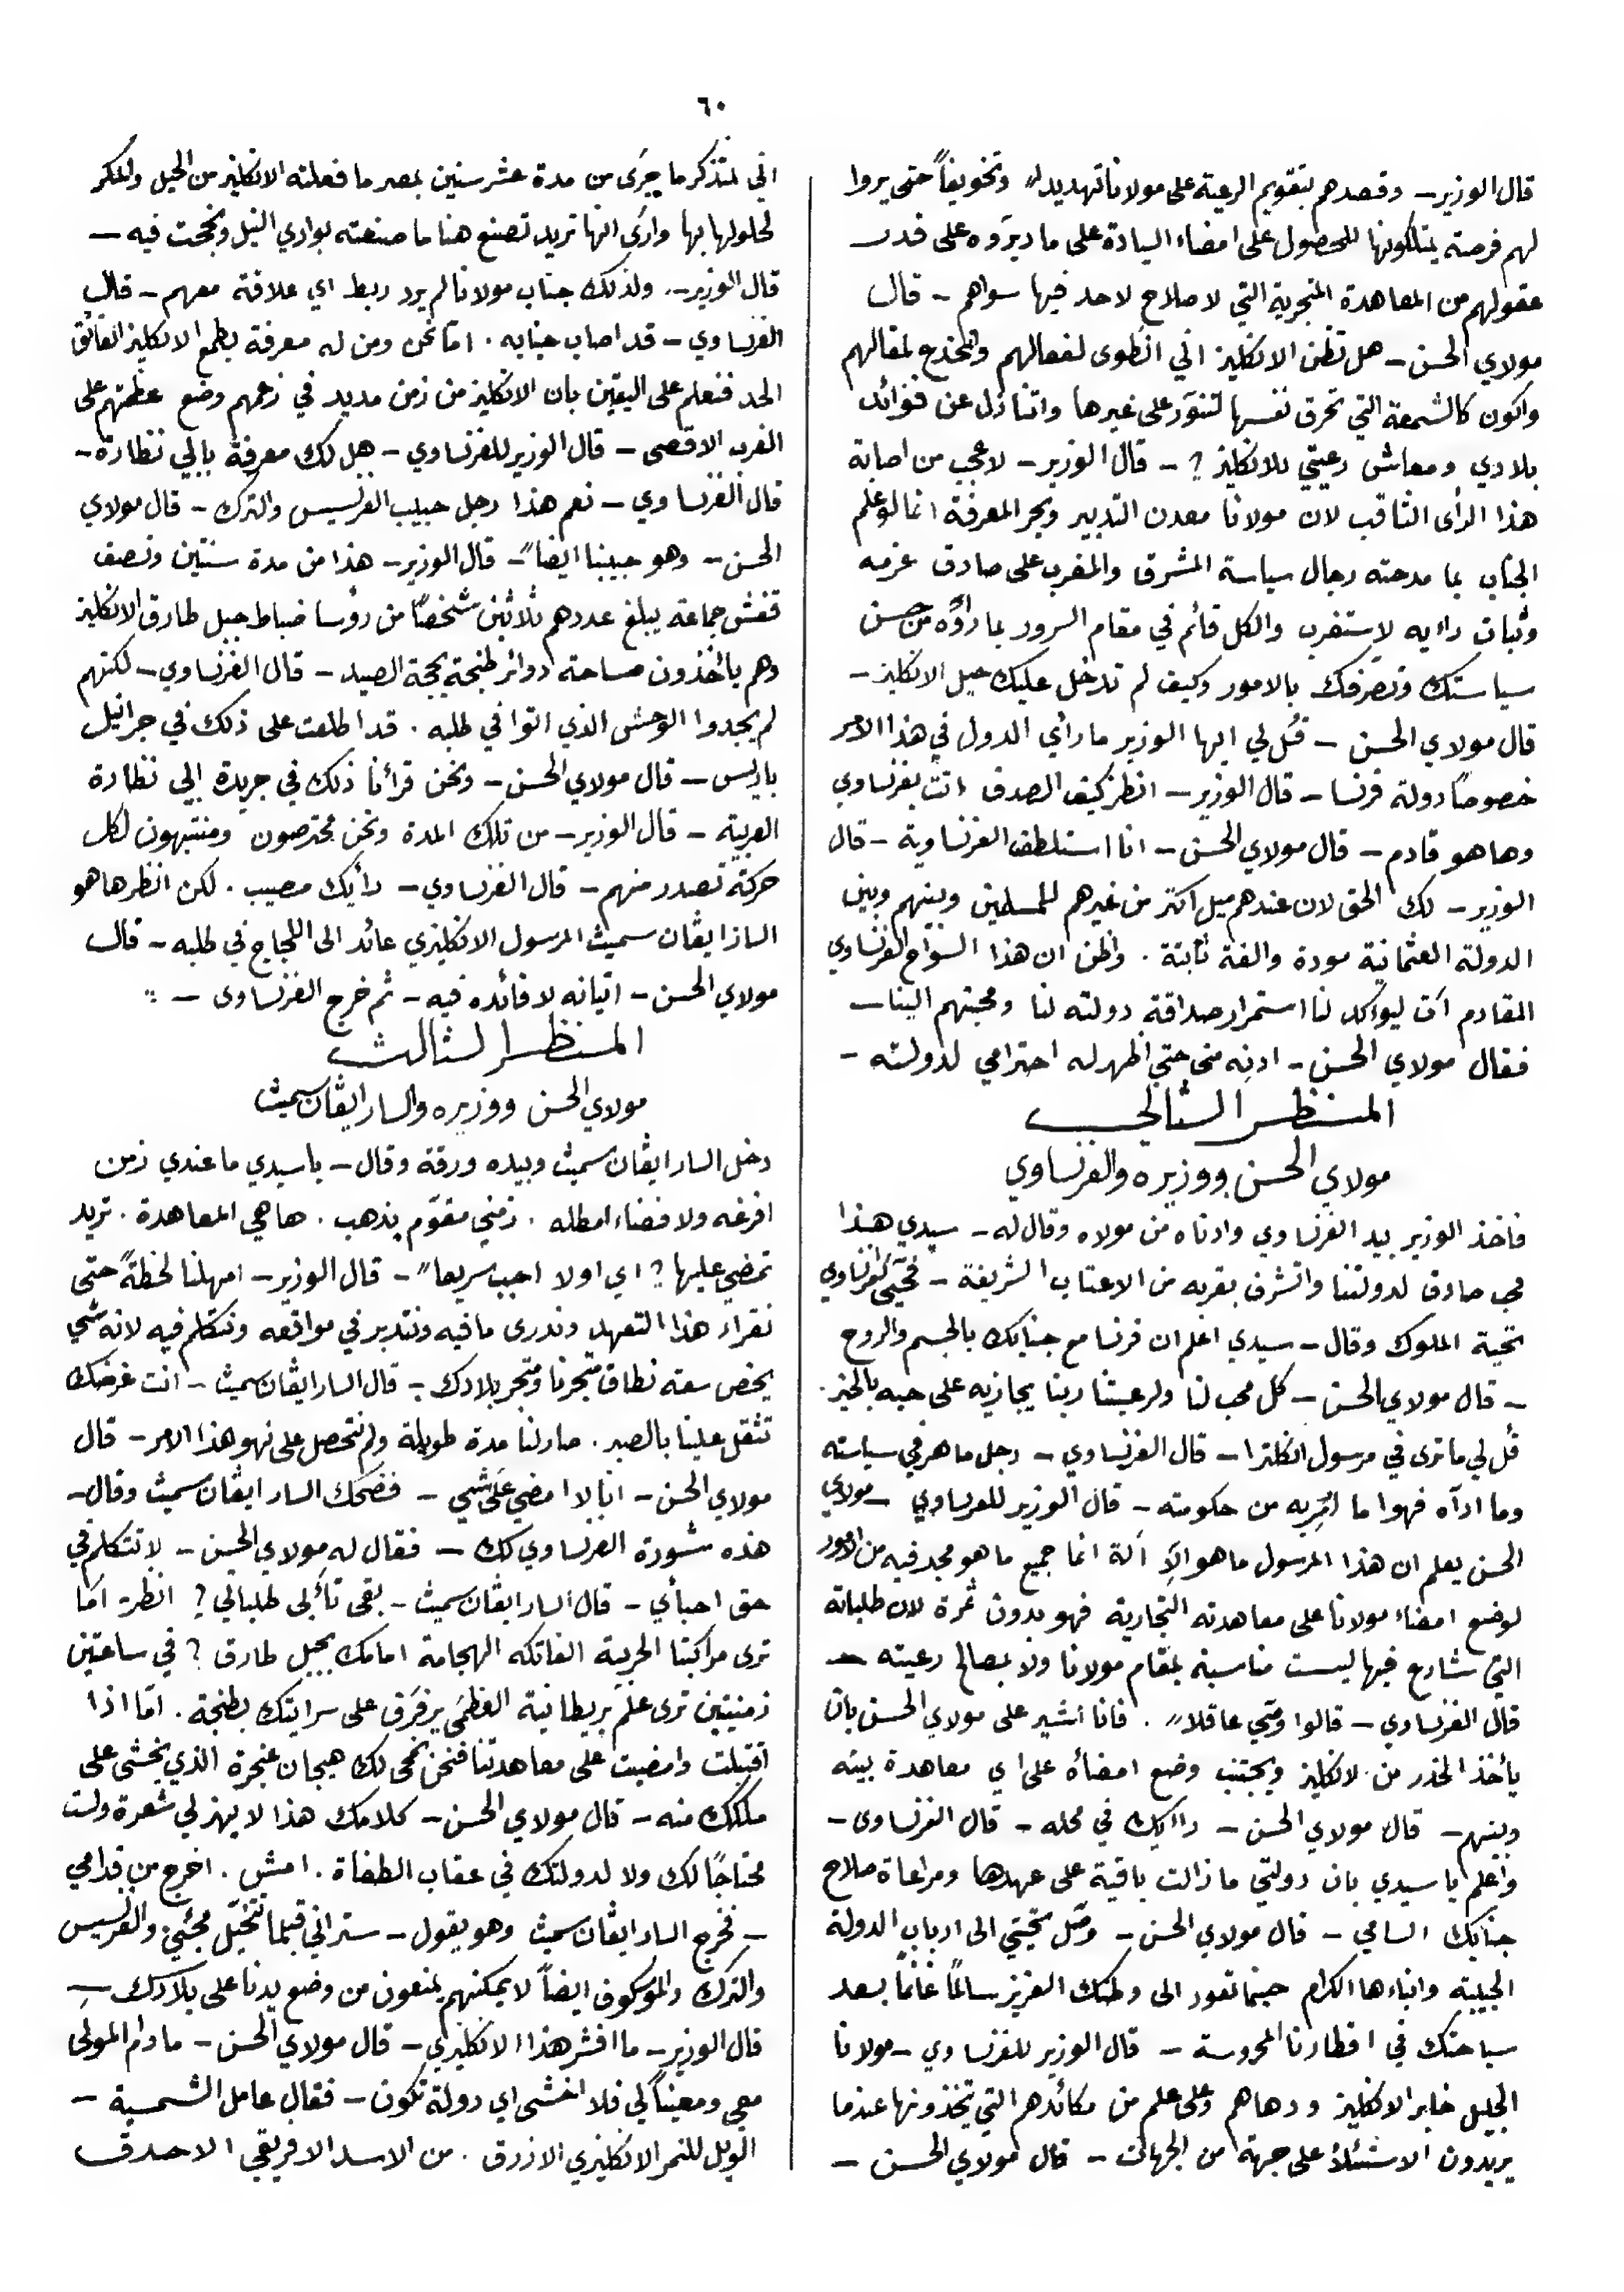 ٦٠
قال الوزير — وقصدهم بتقويم الرعية على مولانا تهديدا وتخويفاً حتى يروا
لهم فرصة يمتلكونها للحصول على امضاء السيادة على ما ديروه على قدر
عقولهم من المعاهدة المتجرية التي لا صلاح لاحد فيها سواهم — قال
مولاي الحسن — هل تظن الانكليز اني انطوى لفعالهم وانخدع لمقالهم
واكون كالشمعة التي تحرق نفسها لتنور على غيرها واتنازل عن فوائد
بلادي ومعاش رعيتي للانكليز ? — قال الوزير — لا عجب من اصابة
هذا الرأى الثاقب لان مولانا معدن التدبير وبحر المعرفة انما لو علم
الجناب بما مدحته رجال سياسة المشرق والمغرب على صادق عزمه
وثبات رايه لاستغرب والكل قائم في مقام السرور بما رأوه من حسن
سياستك وتصرفك بالامور وكيف لم تدخل عليك حيل الانكليز —
قال مولاي الحسن — قُل لي ايها الوزير ما رأي الدول في هذا الامر
خصوصاً دولة فرنسا — قال الوزير — انظر كيف الصدف اتت بفرنساوي
وها هو قادم — قال مولاي الحسن — انا استلطف الفرنساوية — قال
الوزير — لك الحق لان عندهم ميل اكثر من غيرهم للمسلمين وبينهم وبين
الدولة العثمانية مودة والفة ثابتة . واظن ان هذا السواح الفرنساوي
القادم آت ليوكد لنا استمرار صداقة دولته لنا ومحبتهم الينا —
فقال مولاي الحسن — ادنِه منى حتي اظهر له احترامي لدولته —
المنظر الثاني
مولاي الحسن ووزيره والفرنساوي
فاخذ الوزير بيد الفرنساوي وادناه من مولاه وقال له — سيدي هذا
محب صادق لدولتنا واتشرف بقربه من الاعتاب الشريفة — فحيّى الفرنساوي
تحية الملوك وقال — سيدي اعلم ان فرنسا مع جنابك بالجسم والروح
— قال مولاي الحسن — كل محب لنا ولرعيتنا ربنا يجازيه على حبه بالخير .
قُل لي ما ترى في مرسول انكلترا — قال الفرنساوي — رجل ماهر في سياسته
وما ادآه فهوا ما اُمِر به من حكومته — قال الوزير للفرنساوي — مولاي
الحسن يعلم ان هذا المرسول ما هو الّا آلة انما جميع ما هو مجد فيه من الامور
لوضع امضاء مولانا على معاهدته التجارية فهو بدون ثمرة لان طلباته
التي شارع فيها ليست مناسبة لمقام مولانا ولا لمصالح رعيته —
قال الفرنساوي — قالوا وصّي عاقلا . فانا اشير على مولاي الحسن بان
يأخذ الحذر من الانكليز ويجتنب وضع امضأه على اي معاهدة بينه
وبينهم — قال مولاي الحسن — راايك في محله — قال الفرنساوى —
واعلم يا سيدي بان دولتي ما زالت باقية على عهدها ومراعاة صلاح
جنابك السامي — قال مولاي الحسن — وصّل تحيتي الى ارباب الدولة
الحبيبة وابناءها الكرام حينما تعود الى وطنك العزيز سالماً غانماً بعد
سياحتك في اقطارنا المحروسة — قال الوزير للفرنساوي — مولانا
الجليل خابر الانكليز ودهاهم وعلى علم من مكائدهم التي يتخذونها عندما
يريدون الاستئلاء على جهة من الجهات — قال مولاي الحسن —
اني لمتذكر ما جرَى من مدة عشر سنين بمصر ما فعلته الانكليز من الحيل والمكر
لحلولها بها وارَى انها تريد تصنع هنا ما صنعته بوادي النيل ونجحت فيه —
قال الوزير — ولذلك جناب مولانا لم يرد ربط اي علاقة معهم — قال
الفرنساوي — قد اصاب جنابه . امّا نحن ومن له معرفة بطمع الانكليز الفائق
الحد فنعلم على اليقين بان الانكليز من زمن مديد في زعمهم وضع عظمتهم على
الغرب الاقصى — قال الوزير للفرنساوي — هل لك معرفة بابي نظارة —
قال الفرنساوي — نعم هذا رجل حبيب الفرنسيس والترك — قال مولاي
الحسن — وهو حبيبنا ايضاً — قال الوزير — هذا من مدة سنتين ونصف
قفش جماعة يبلغ عددهم ثلاثين شخصًا من رؤسا ضباط جبل طارق الانكليز
وهم ياخذون مساحة دوائر طنجة بحجة الصيد — قال الفرنساوي — لكنهم
لم يجدوا الوحش الذي اتوا في طلبه . قد اطلعت على ذلك في جرانيل
باريس — قال مولاي الحسن — ونحن قرأنا ذلك في جريدة ابي نظارة
العربية — قال الوزير — من تلك المدة ونحن محترصون ومنتبهون لكل
حركة تصدر منهم — قال الفرنساوي — رأيك مصيب . لكن انظر ها هو
السار ايڤان سميث المرسول الانكليزي عائد الى اللجاج في طلبه — قال
مولاي الحسن — اتيانه لا فائده فيه — ثم خرج الفرنساوى —
المنظر الثالث
مولاي الحسن ووزيره والسار ايڤان سميث
دخل السار ايڤان سميث وبيده ورقة وقال — يا سيدي ما عندي زمن
افرغه ولا فضاء امطله . زمني مقوّم بذهب . ها هي المعاهدة . تريد
تمضي عليها ? اي او لا اجب سريعا — قال الوزير — امهلنا لحظةً حتى
نقراء هذا التعهد وندرى ما فيه ونتدبر في مواقعه ونتكلم فيه لانه شي
يخص سعة نطاق متجرنا ومتجر بلادك — قال السار ايڤان سميث — انت غرضك
تثقل علينا بالصبر . صار لنا مدة طويلة ولم نتحصل على نهو هذا الامر — قال
مولاي الحسن — انا لا امضي على شي — فضحك السار ايڤان سميث وقال —
هذه شورة الفرنساوي لك — فقال له مولاي الحسن — لا تتكلم في
حق احبأي — قال السار ايڤان سميث — بقى تأبى طلباتي ? انظر امَا
ترى مراكبنا الحربية الفاتكه الهجامة امامك بجبل طارق ? في ساعتين
زمنيتين ترى علم بريطانية العظمَى يرفرَف على سرايتك بطنجة . امّا اذا
اقتبلت وامضيت على معاهدتنا فنحن نمحى لك هيجان عنجرة الذي يخشى على
ملكك منه — قال مولاي الحسن — كلامك هذا لا يهز لي شعرة ولست
محتاجًا لك ولا لدولتك في عقاب الطغاة . امش . اخرج من قدامي
— فخرج السار ايڤان سميث وهو يقول — ستراني قبلما تتخيّل مجئي والفرنسيس
والترك والموسكوف ايضاً لا يمكنهم يمنعون من وضع يدنا على بلادك —
قال الوزير — ما افشر هذا الانكليزي — قال مولاي الحسن — ما دام المولى
معي ومعيناً لي فلا اخشى اي دولة تكون — فقال عامل الشمسية —
الويل للنمر الانكليزي الازرق . من الاسد الافريقي الاصدق